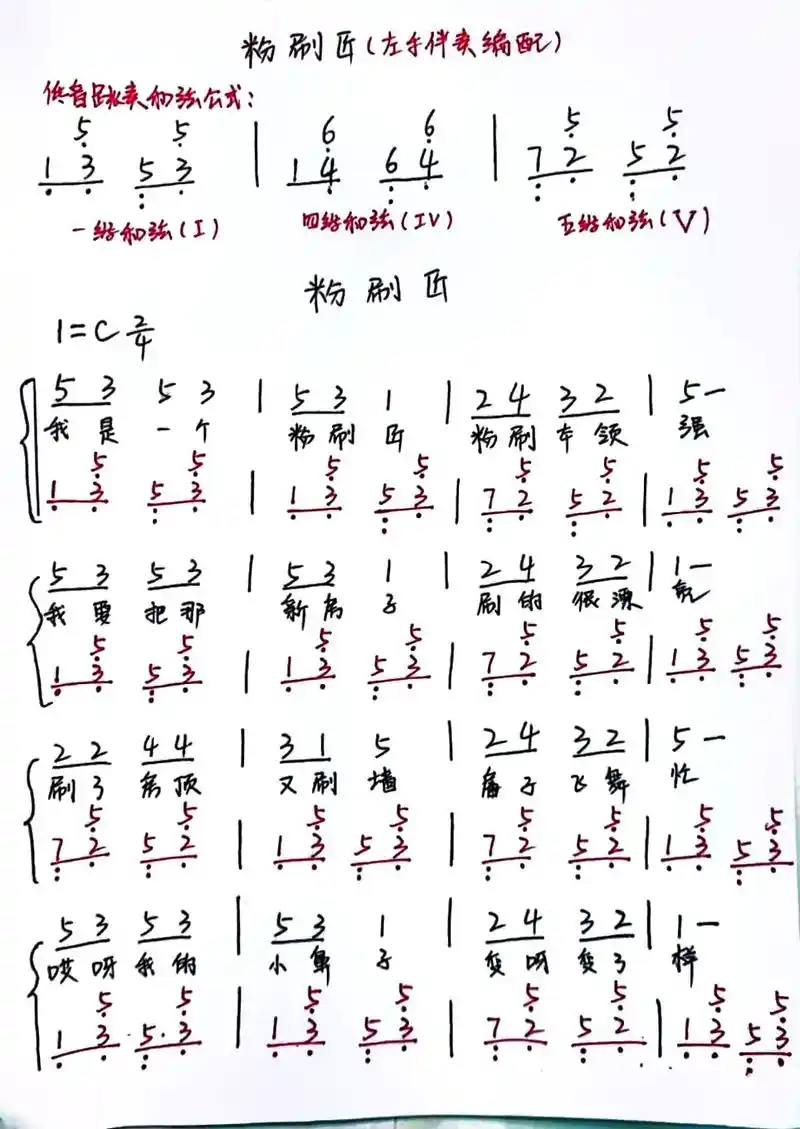 粉刷匠(左手伴奏编配)
低音跳奏和弦公式:
5 5 | 6 6 | 5 5
1 3 5 3 | 1 4 6 4 | 7 2 5 2
一级和弦(I) 四级和弦(IV) 五级和弦(V)
粉刷匠
1=C 2/4
5 3 5 3 | 5 3 1 | 2 4 3 2 | 5 —
我是一个 粉刷匠 粉刷本领 强
5 5 | 5 5 | 5 5 | 5 5
1 3 5 3 | 1 3 5 3 | 7 2 5 2 | 1 3 5 3
5 3 5 3 | 5 3 1 | 2 4 3 2 | 1 —
我要把那 新房子 刷的很漂 亮
5 5 | 5 5 | 5 5 | 5 5
1 3 5 3 | 1 3 5 3 | 7 2 5 2 | 1 3 5 3
2 2 4 4 | 3 1 5 | 2 4 3 2 | 5 —
刷了房顶 又刷墙 刷子飞舞 忙
5 5 | 5 5 | 5 5 | 5 5
7 2 5 2 | 1 3 5 3 | 7 2 5 2 | 1 3 5 3
5 3 5 3 | 5 3 1 | 2 4 3 2 | 1 —
哎呀我的 小鼻子 变呀变了 样
5 5 | 5 5 | 5 5 | 5 5
1 3 5 3 | 1 3 5 3 | 7 2 5 2 | 1 3 5 3